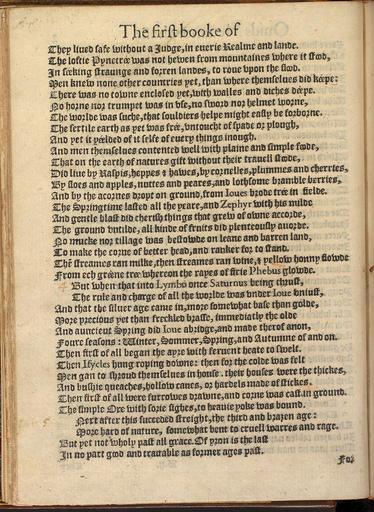 The first booke of
They liued safe without a Judge, in euerie Realme and lande.
The loftie Pynetree was not hewen from mountaines where it stood,
In seeking straunge and forren landes, to roue vpon the flood.
Men knew none other countries yet, than where themselues did keepe:
There was no towne enclosed yet, with walles and diches deepe.
No horne nor trumpet was in vse, no sword nor helmet worne,
The worlde was suche, that souldiers helpe might easly be forborne.
The fertile earth as yet was free, vntoucht of spade or plough,
And yet it yeelded of it selfe of euery things inough.
And men themselues contented well with plaine and simple foode,
That on the earth of natures gift without their trauell stoode,
Did liue by Raspis, heppes & hawes, by cornelles, plummes and cherries,
By sloes and apples, nottes and peares, and lothsome bramble berries,
And by the acornes dropt on ground, from Ioues brode tree in fielde.
The Springtime lasted all the yeare, and Zephyr with his milde
And gentle blast did cherish things that grew of owne accorde,
The ground vntilde, all kinde of fruits did plenteously auorde.
No mucke nor tillage was bestowde on leane and barren land,
To make the corne of better head, and ranker for to stand.
The streames ran milke, then streames ran wine, & yellow honny flowde
From ech greene tree whereon the rayes of firie Phebus glowde.
But when that into Lymbo once Saturnus being thrust,
The rule and charge of all the worlde was vnder Ioue vniust,
And that the siluer age came in, more somewhat base than golde,
More precious yet than freckled brasse, immediatly the olde
And auncient Spring did Ioue abridge, and made therof anon,
Foure seasons: Winter, Sommer, Spring, and Autumne of and on.
Then first of all began the ayre with feruent heate to swelt.
Then Isycles hung roping downe: then for the colde was felt
Men gan to shroud themselues in house. their houses were the thickes,
And bushie queaches, hollow caues, or hardels made of stickes.
Then first of all were furrowes drawne, and corne was cast in ground.
The simple Oxe with sorie sighes, to heauie yoke was bound.
Next after this succeded streight, the third and brazen age:
More hard of nature, somewhat bent to cruell warres and rage.
But yet not wholy past all grace. Of yron is the last
In no part good and tractable as former ages past.
For